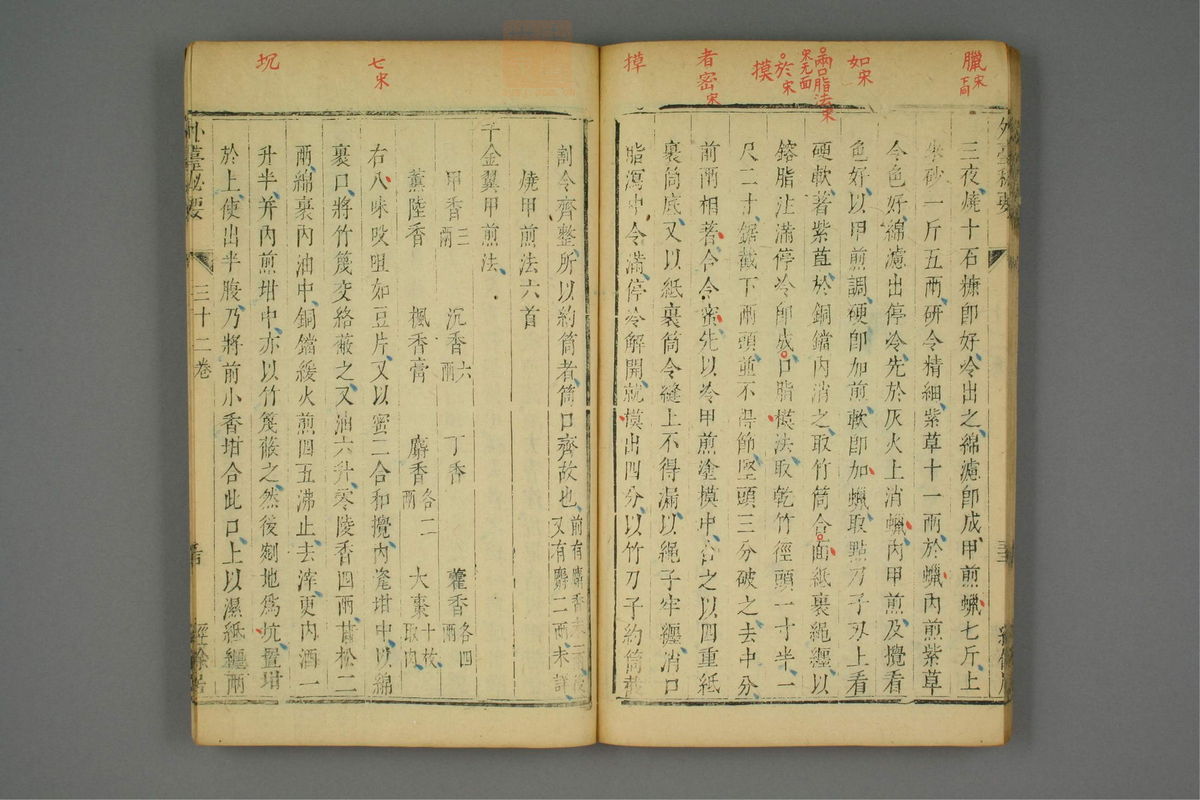 臘宋
上同
如宋
兩口脂法宋
宋无面
於宋
摸
者密宋
摸
七宋
坬
外臺秘要
三夜燒十石糠即好冷出之綿濾即成甲煎蠟七斤上
朱砂一斤五兩研令精細紫草十一兩於蠟內煎紫草
令色好綿濾出停冷先於灰火上消蠟內甲煎及攪看
色好以甲煎調硬即加煎軟即加蠟取點刀子刃上看
硬軟著紫苴於銅鐺內消之取竹筒合面紙裹繩纏以
鎔脂注滿停冷即成口脂模法取乾竹徑頭一寸半一
尺二寸鋸截下兩頭並不得節堅頭三分破之去中分
前兩相著合令蜜先以冷甲煎塗模中合之以四重紙
裹筒底又以紙裹筒令縫上不得漏以繩子牢纏消口
脂瀉中令滿停冷解開就模出四分以竹刀子約筒截
割令齊整所以約筒者筒口齊故也
又有麝二兩未詳
燒甲煎法六首
千金翼甲煎法
甲香三兩 沉香六兩 丁香 藿香各四兩
薰陸香 楓香膏 麝香各二兩 大棗十枚取肉
右八味㕮咀如豆片又以蜜二合和攪內瓷坩中以綿
裹口將竹篾交絡蔽之又油六升寒陵香四兩甘松二
兩綿裹內油中銅鐺緩火煎四五沸止去滓更內酒一
升半并內煎坩中亦以竹篾蔽之然後剜地爲坑置坩
於上使出半腹乃將前小香坩合此口上以濕紙纏兩
外臺秘要
三十二卷
經餘居